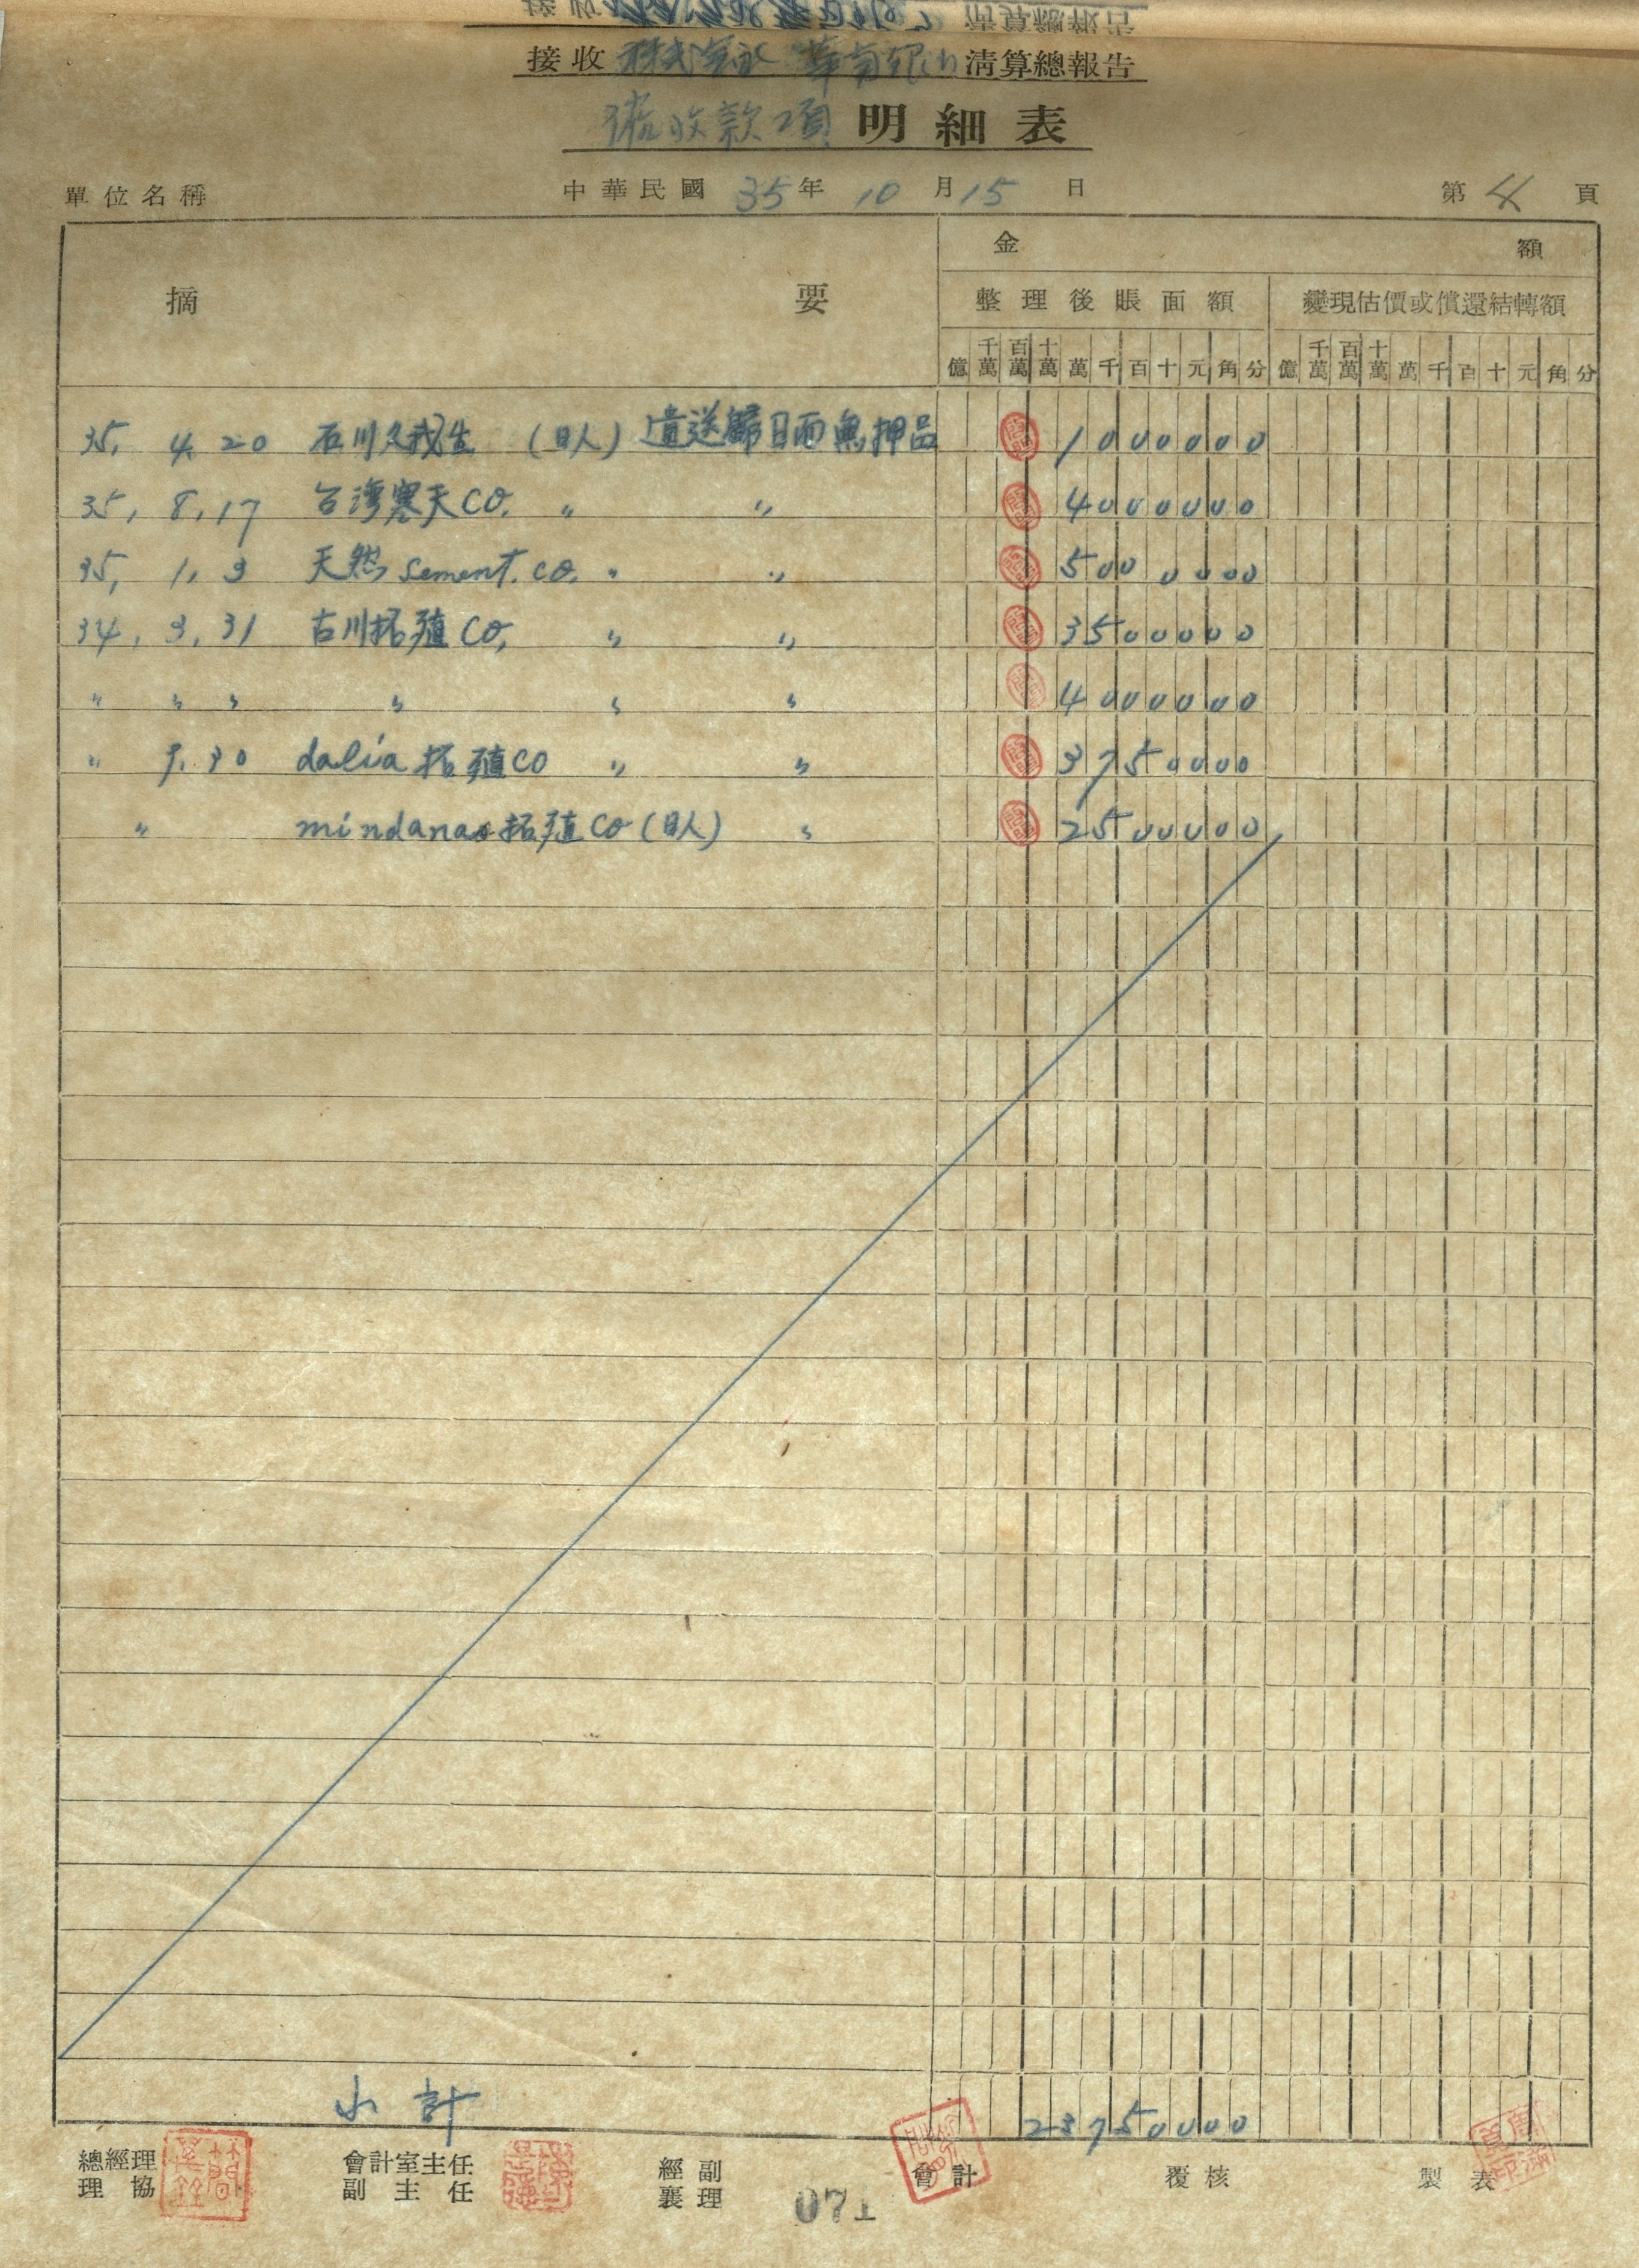 接收 株式會社 華南銀行 清算總報告
催收款項 明細表
單位名稱 中華民國 35 年 10 月 15 日 第 4 頁
摘要 金額
整理後賬面額 變現估價或償還結轉額
億 千萬 百萬 十萬 萬 千 百 十 元 角 分 億 千萬 百萬 十萬 萬 千 百 十 元 角 分
35, 4, 20 石川久我生 (日人) 遣送歸日而無押品 1000000
35, 8, 17 台灣寒天CO. 〃 〃 4000000
35, 1, 9 天然 Sement. CO. 〃 〃 5000000
34, 3, 31 古川拓殖 CO, 〃 〃 3500000
〃 〃 〃 〃 〃 〃 4000000
〃 9. 30 dalia 拓殖 CO 〃 〃 3750000
〃 mindanao 拓殖 CO (日人) 〃 2500000
小計 23750000
總經理 會計室主任 經副 會計 覆核 製表
理協 副主任 襄理
071